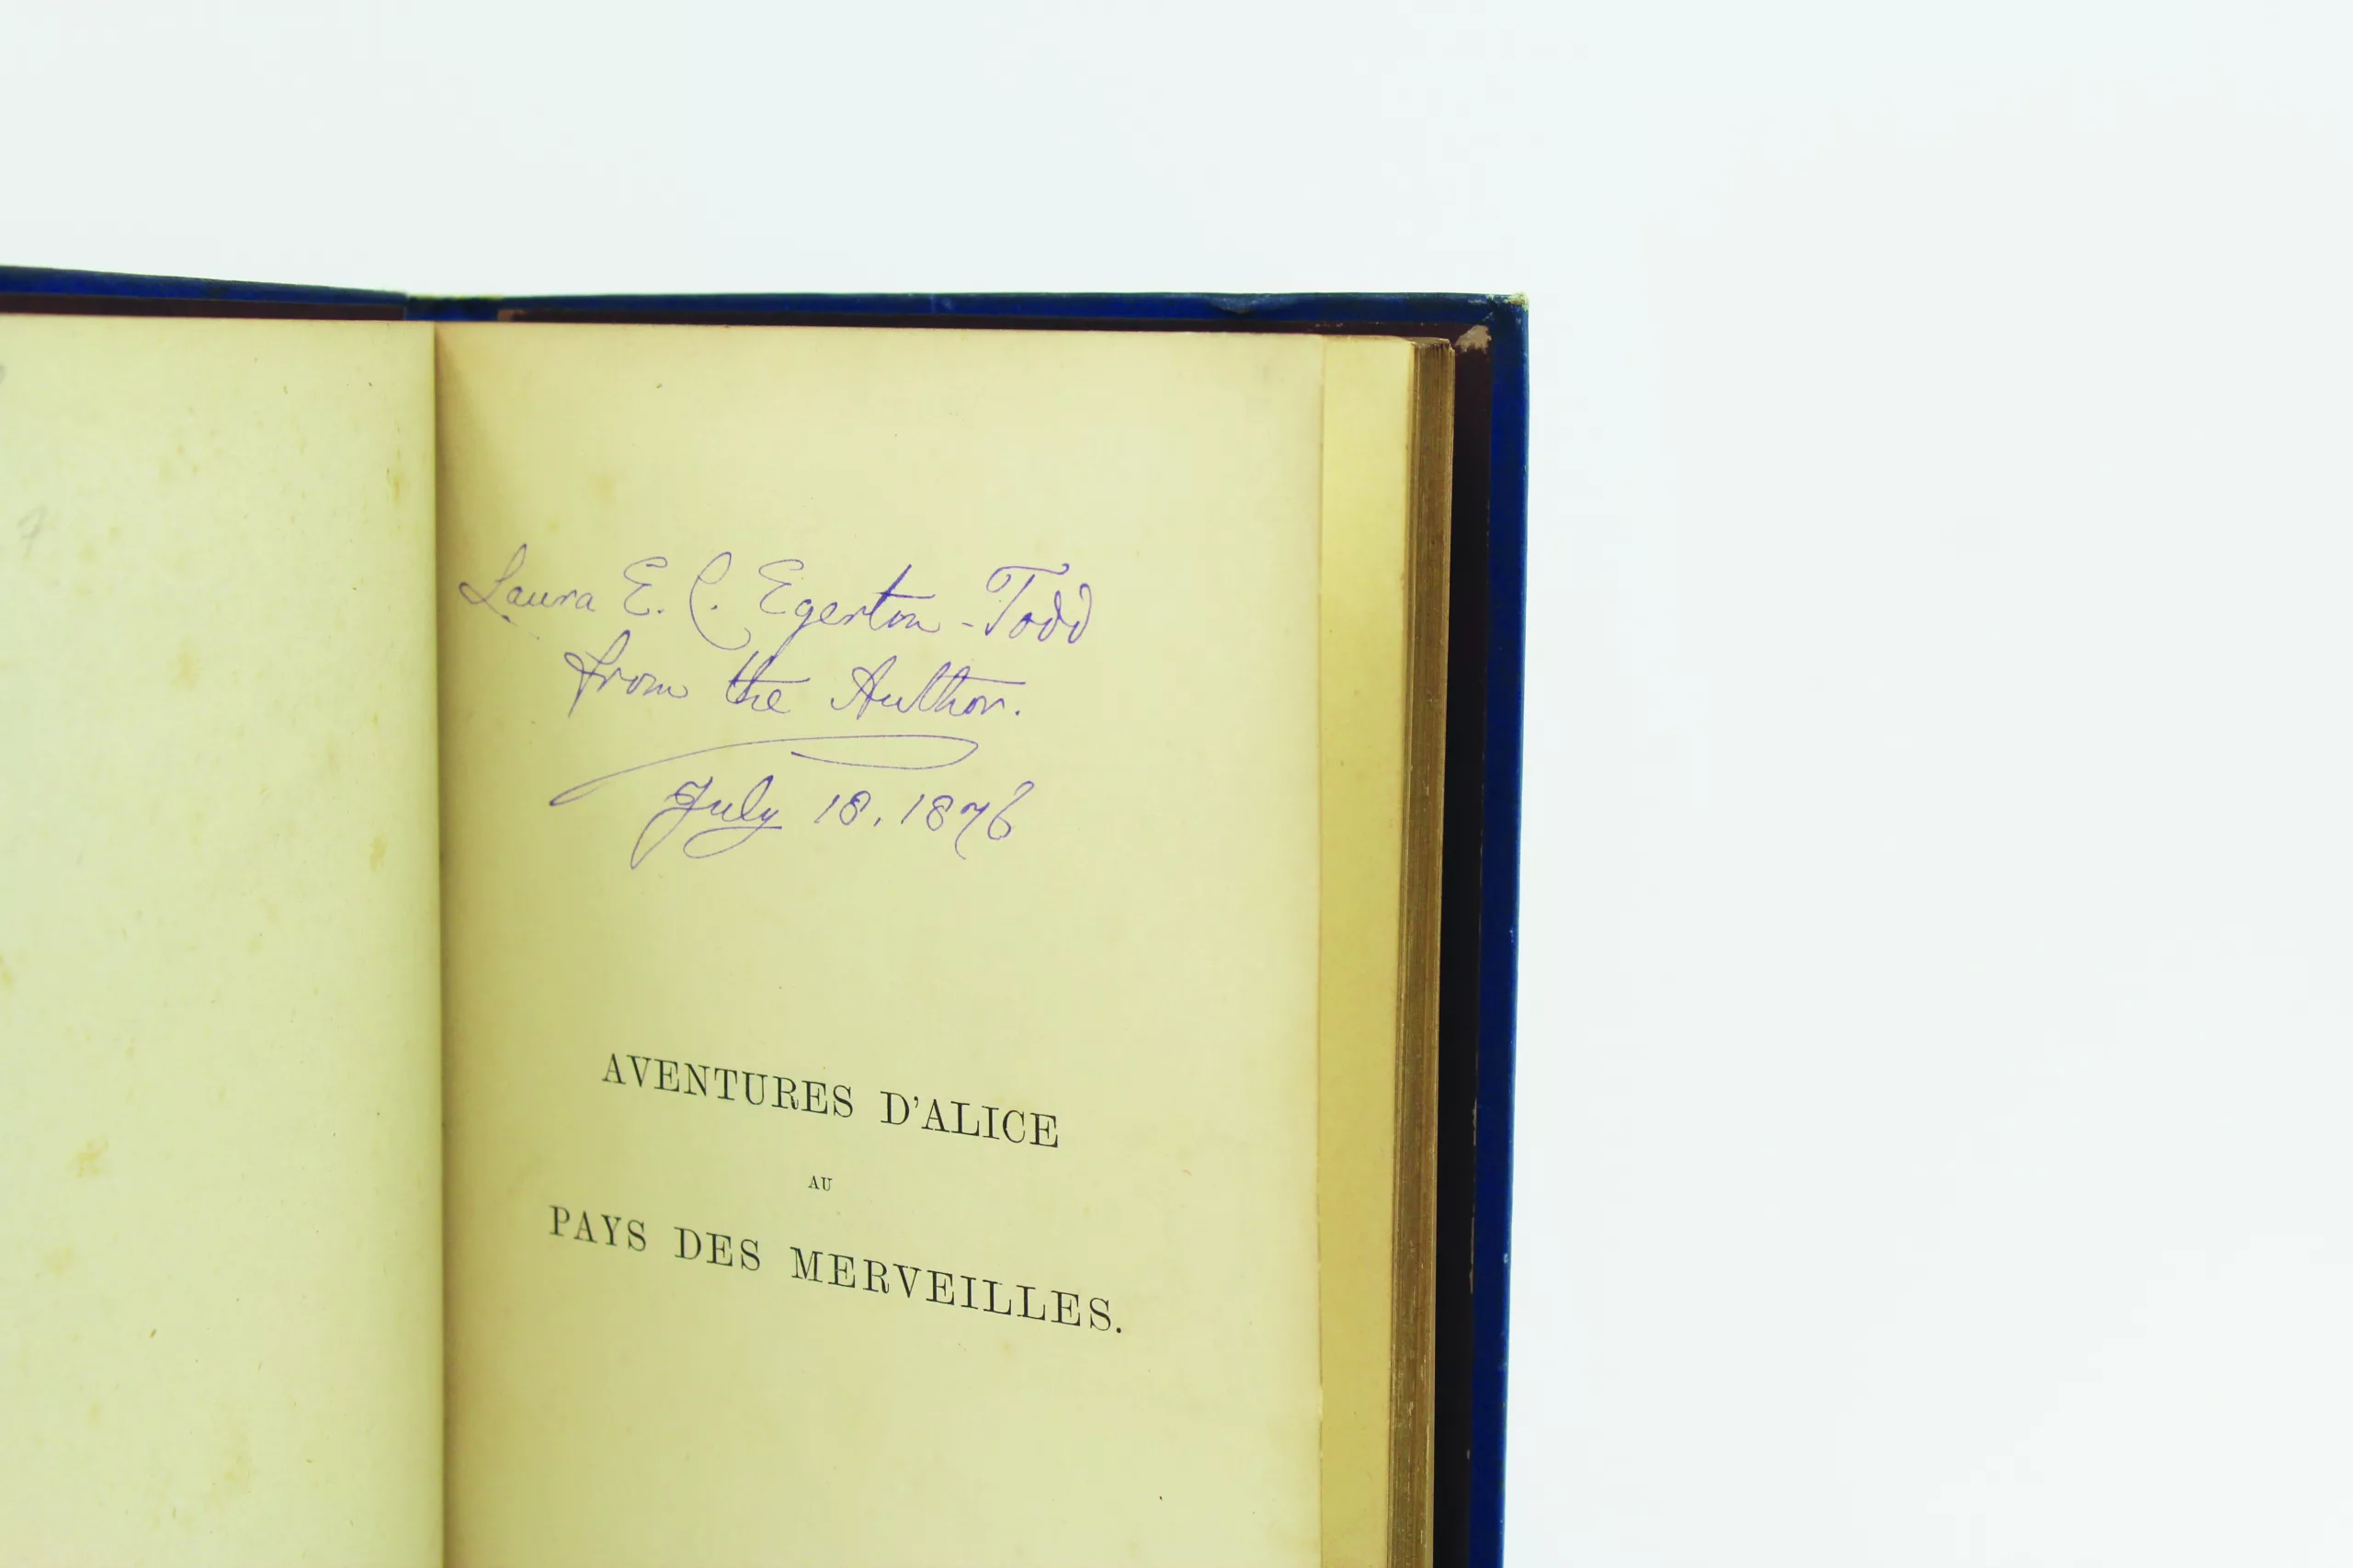 Laura E. C. Egerton-Todd
from the Author.
July 18. 1876
AVENTURES D'ALICE
AU
PAYS DES MERVEILLES.